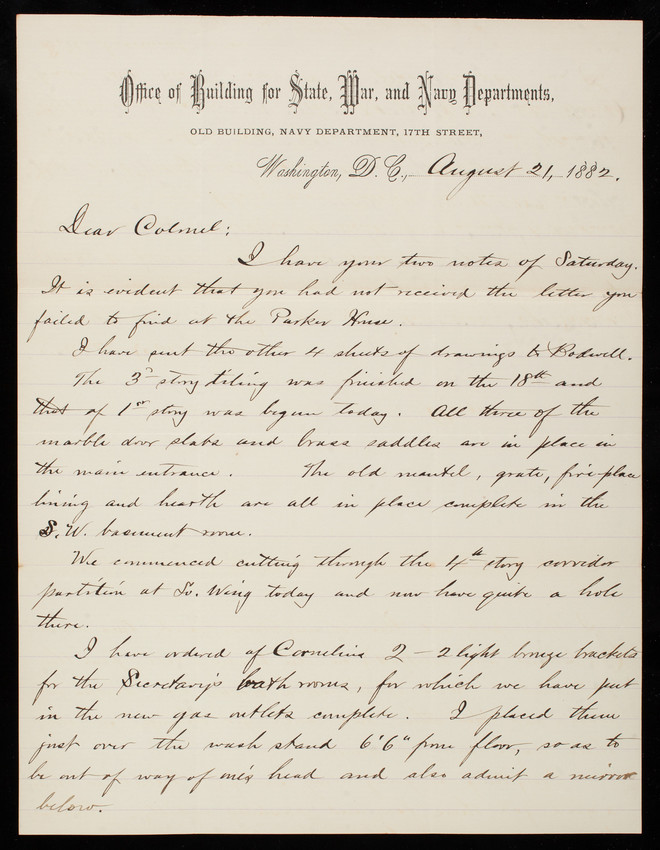 Office of Building for State, War, and Navy Departments,
OLD BUILDING, NAVY DEPARTMENT, 17TH STREET,
Washington, D. C., August 21, 1882.
Dear Colonel:
I have your two notes of Saturday.
It is evident that you had not received the letter you
failed to find at the Parker House.
I have sent the other 4 sheets of drawings to Bodwell.
The 3d story tiling was finished on the 18th and
that of 1st story was begun today. All three of the
marble door slabs and brass saddles are in place in
the main entrance. The old mantel, grate, fire-place
lining and hearth are all in place complete in the
S. W. basement room.
We commenced cutting through the 4th story corridor
partition at So. Wing today and now have quite a hole
there.
I have ordered of Cornelius 2 - 2 light bronze brackets
for the Secretary's bath rooms, for which we have put
in the new gas outlets complete. I placed them
just over the wash stand 6'6" from floor, so as to
be out of way of one's head and also admit a mirror
below.